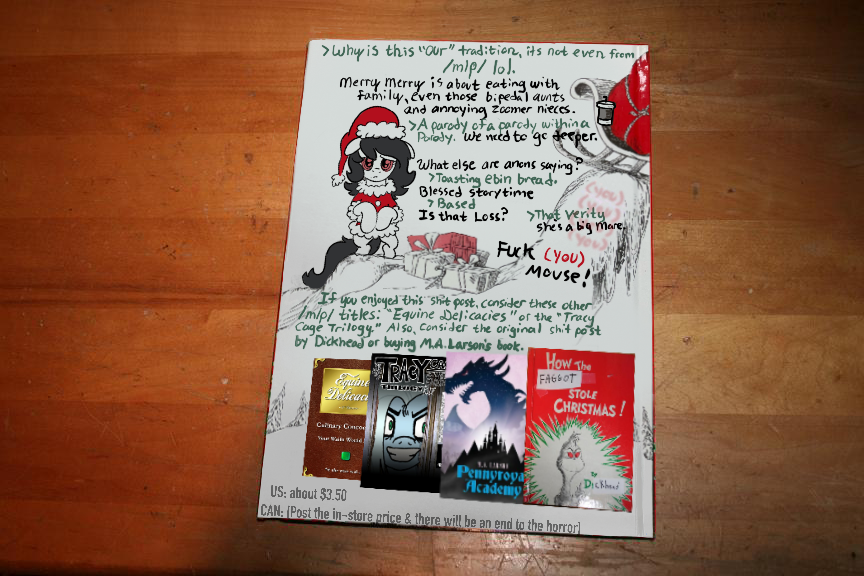 >Why is this "our" tradition, its not even from
/mlp/ lol.
Merry Merry is about eating with
family, even those bipedal aunts
and annoying zoomer nieces.
>A parody of a parody within a
Parody. We need to go deeper.
What else are anons saying?
>Toasting ebin bread.
Blessed storytime
>Based
Is that Loss?
>That Verity
shes a big mare.
(you).
(you)
(you).
Fuck (YOU)
Mouse!
If you enjoyed this shit post, consider these other
/mlp/ titles: "Equine Delicacies" or the "Tracy
Cage Trilogy." Also, consider the original shit post
by Dickhead or buying M.A. Larson's book.
Equine
Delicaci
Culinary Concoc
Your Waifu World
TRACY
M.A. LARSON
Pennyroya
Academy
HOW The
FAGGOT
STOLE
CHRISTMAS!
by
Dickhead
US: about $3.50
CAN: (Post the in-store price & there will be an end to the horror)